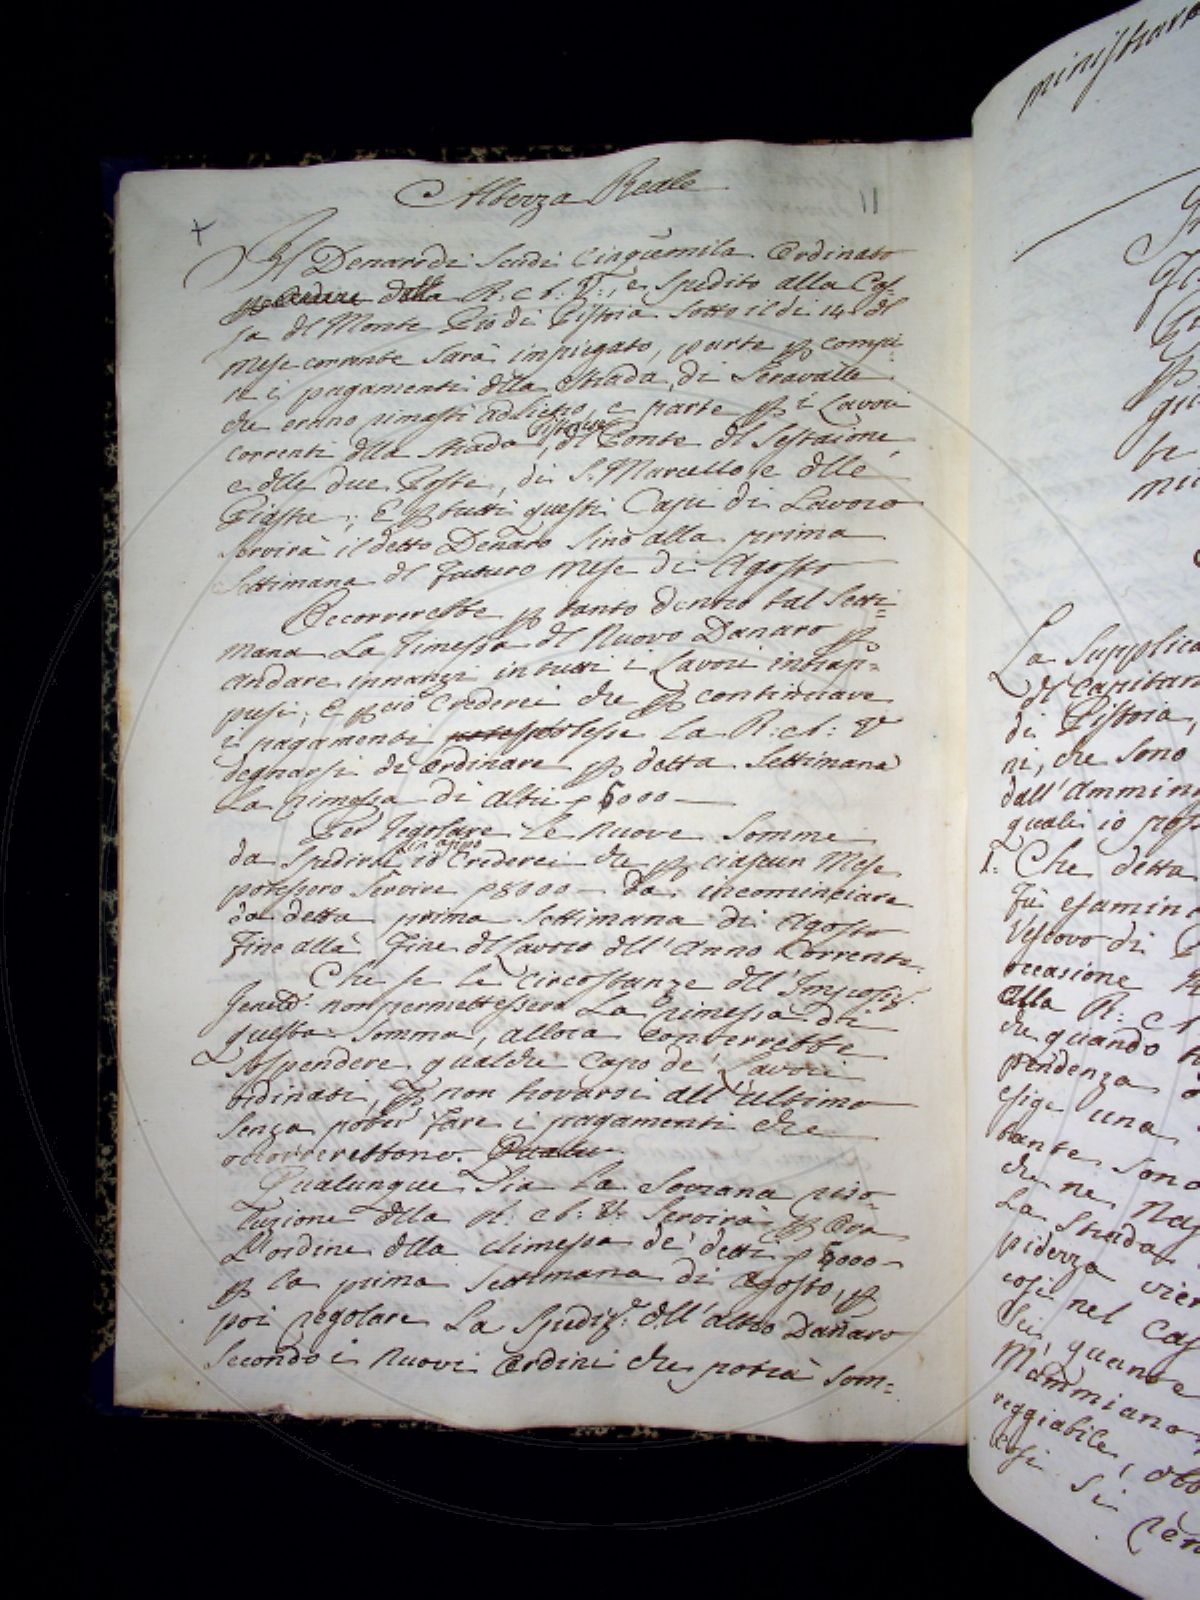 Altezza Reale
11
Il Denaro di Scudi Cinquemila Ordinato
dalla R: A: V:, e spedito alla Cas-
sa del Monte Pio di Pistoia sotto il di 14 del
mese corrente sarà impiegato, parte p compi-
re i pagamenti della Strada di Seravalle
che erano rimasti addietro, e parte p i Lavori
correnti della strada Pistoiese, del Ponte del Sestaione,
e delle due Poste, di S. Marcello, e delle
Piastre; E p tutti questi Capi di Lavoro
servirà il detto Denaro sino alla prima
Settimana del futuro mese di Agosto
Occorrerebbe p tanto dentro tal Setti=
mana La Rimessa del Nuovo Danaro p
andare innanzi in tutti i Lavori intrap=
presi; E p ciò Crederei che p continuare
i pagamenti potesse La R: A: V:
degnarsi di Ordinare p detta Settimana
La rimessa di altri 5000
Per Regolare le nuove somme
da spedirsi io Crederei che p ciascun Mese
potessero servire 8000 da incominciare
da detta prima Settimana di Agosto
fino alla fine del Lavoro dell'Anno Corrente.
Che se le circostanze dell'Imposiz.
non permettessero La rimessa di
questa somma, allora converrebbe
sospendere qualche Capo de' Lavori
ordinati, p non trovarsi all'ultimo
senza poter fare i pagamenti che
occorrerebbono.
Qualunque sia La Sovrana riso-
luzione della R: A: V: servirà p Ora
L'ordine della rimessa de' detti 5000
p la prima Settimana di Agosto, p
poi regolare La Spediz. dell'altro Danaro
Secondo i nuovi Ordini che potrà som=
ministrare
La Supplica
del Capitan
di Pistoia,
ni, che sono
dall'Ammin
quali io
1. Che detta
fù esamin
Vescovo di
occasione
alla R: A
che quando
pendenza
esige una
tante sono
che ne
La Strada
così nel Cas
quanto
Mammiano
reggiabile,
Così si